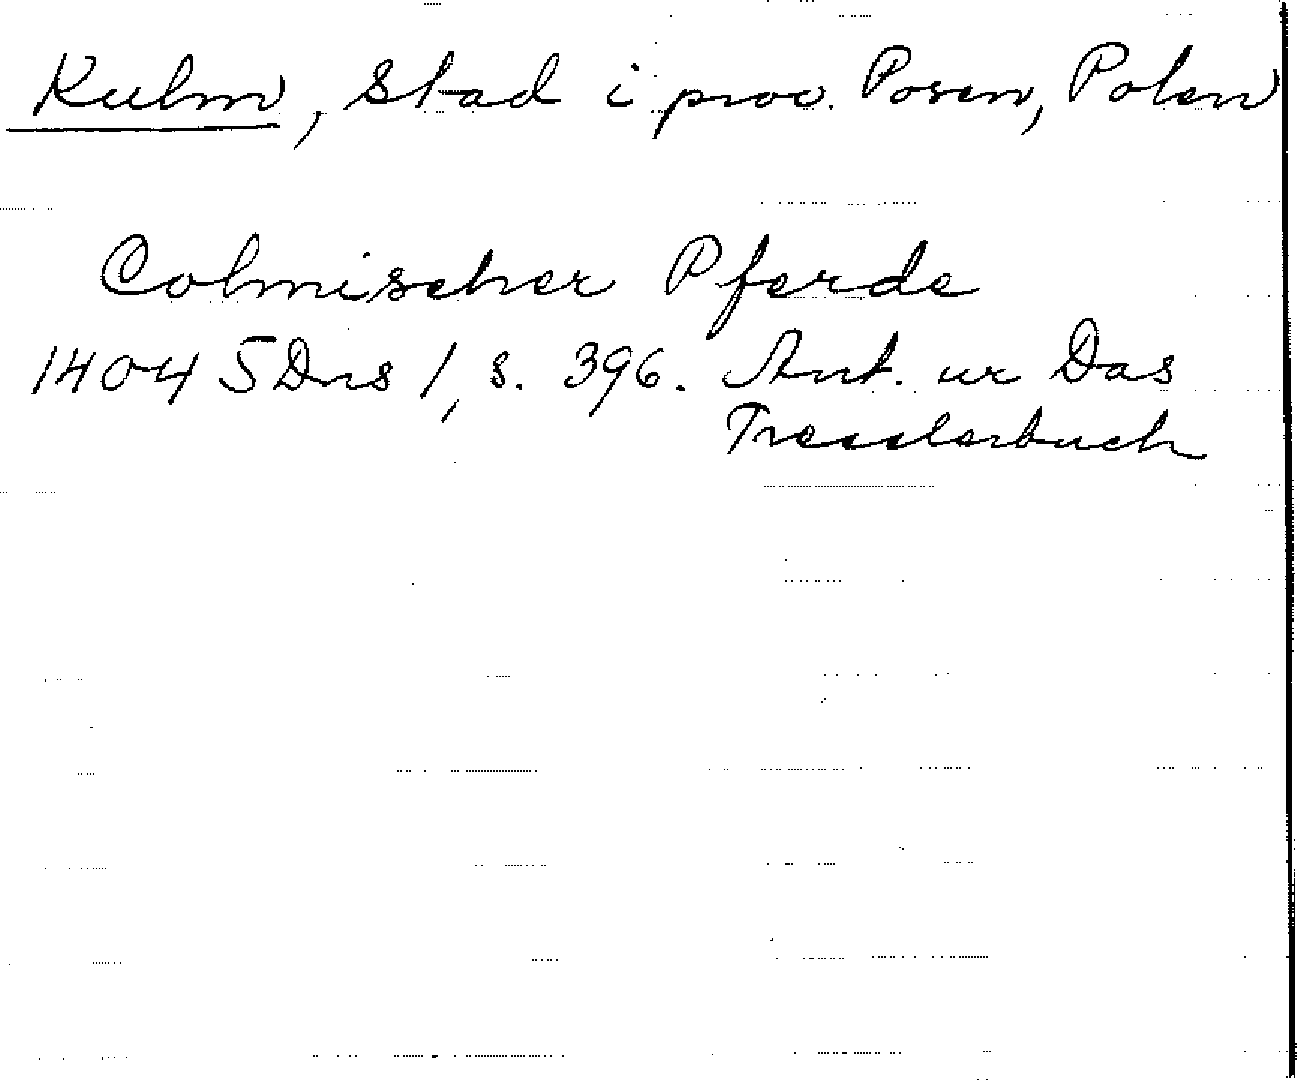 Kulm, Stad i prov. Posen, Polen
Colmischer Pferde
1404 SDns 1, s. 396. Ant. ur Das
Tresslerbuch